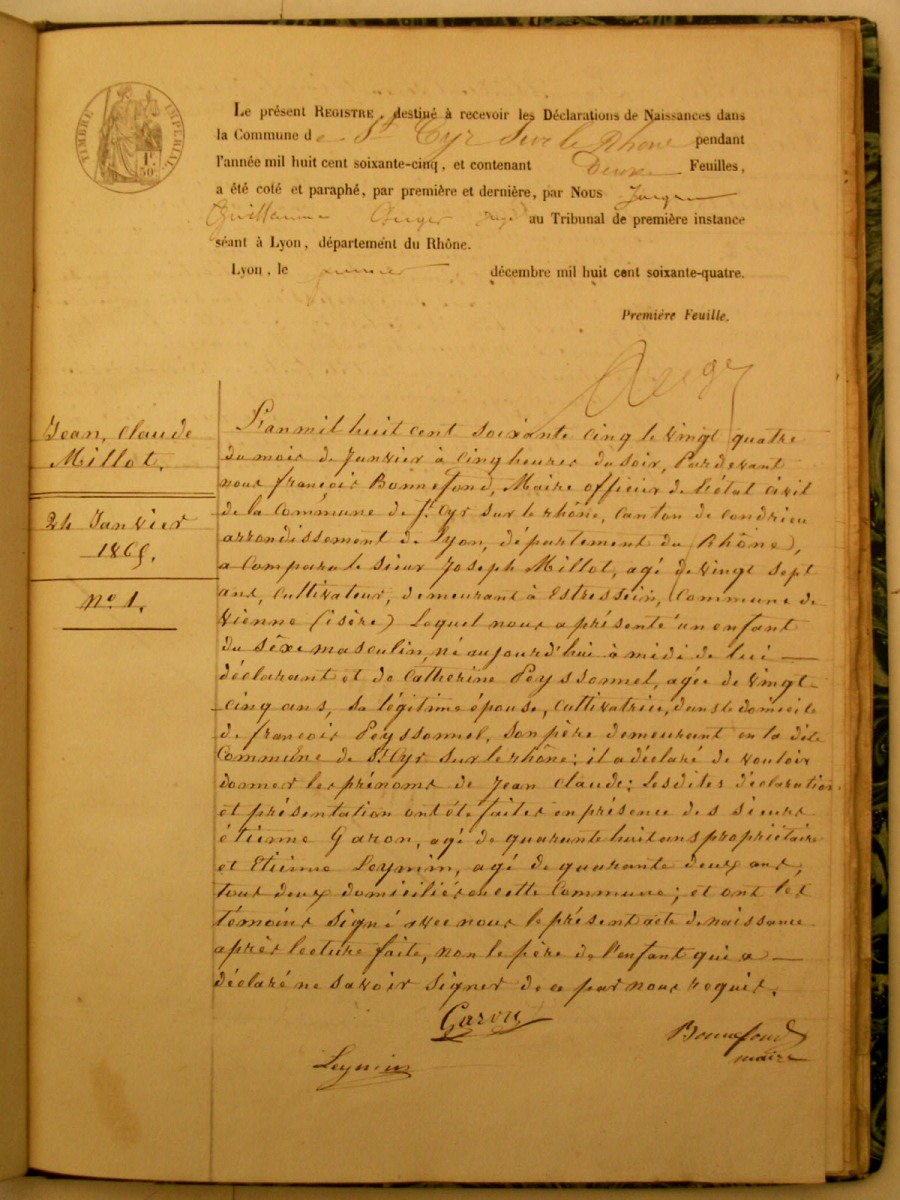 TIMBRE IMPERIAL
1F.
50c
Le présent REGISTRE, destiné à recevoir les Déclarations de Naissances dans
la Commune de St Cyr sur le Rhône pendant
l'année mil huit cent soixante-cinq, et contenant Deux Feuilles,
a été coté et paraphé, par première et dernière, par Nous
Guillaume Auger juge au Tribunal de première instance
séant à Lyon, département du Rhône.
Lyon, le premier décembre mil huit cent soixante-quatre.
Première Feuille.
Auger
Jean, Claude
Millot.
24 Janvier
1865.
No. 1.
L'an mil huit cent soixante cinq le vingt quatre
du mois de Janvier à cinq heures du soir, Pardevant
nous françois Bonnefond, Maire officier de l'état civil
de la Commune de St. Cyr sur le rhône, canton de condrieu
arrondissement de Lyon, département du (Rhône),
a comparu le sieur Joseph Millot, agé de vingt sept
ans, cultivateur, demeurant à Estressin, Commune de
Vienne (isère) Lequel nous a présenté un enfant
du séxe masculin, né aujourd'hui à midi de lui —
déclarant et de Catherine Peyssonnel, agée de vingt-
cinq ans, sa légitime épouse, cultivatrice, dans le domicile
de francois Peyssonnel, son père demeurant en la dite
Commune de St Cyr sur le rhône; il a déclaré de vouloir
donner les prénoms de Jean Claude; Lesdites déclaration
et présentation ont été faites en présence des sieurs
étienne Garon, agé de quarante huit ans propriétaire
et Etienne Leymin, agé de quarante deux ans,
tous deux domiciliés en cette Commune; et ont les
témoins signé avec nous le présent acte de naissance
après lecture faite, non le père de l'enfant qui a —
déclaré ne savoir signer de ce par nous requis.
Garon
Bonnefond
maire
Leymin